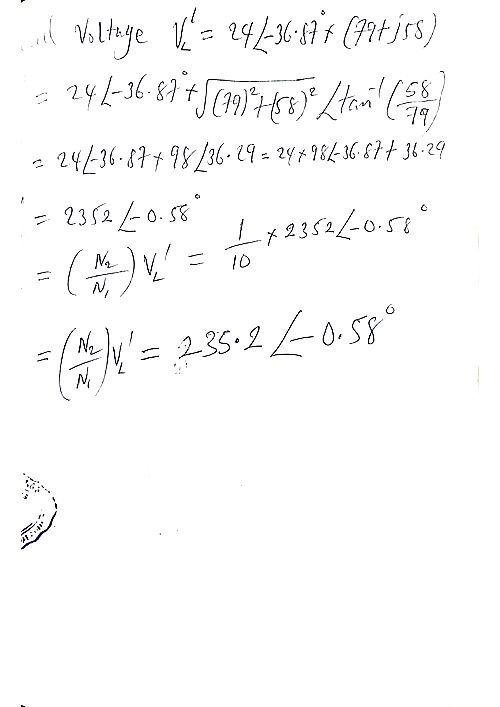 Voltage V_L' = 24∠-36.87° × (79+j58)
= 24∠-36.87° × √((79)²+(58)²) ∠tan⁻¹(58/79)
= 24∠-36.87 × 98∠36.29 = 24×98∠-36.87+36.29
= 2352∠-0.58°
= (N₂/N₁) V_L' = 1/10 × 2352∠-0.58°
= (N₂/N₁) V_L' = 235.2∠-0.58°